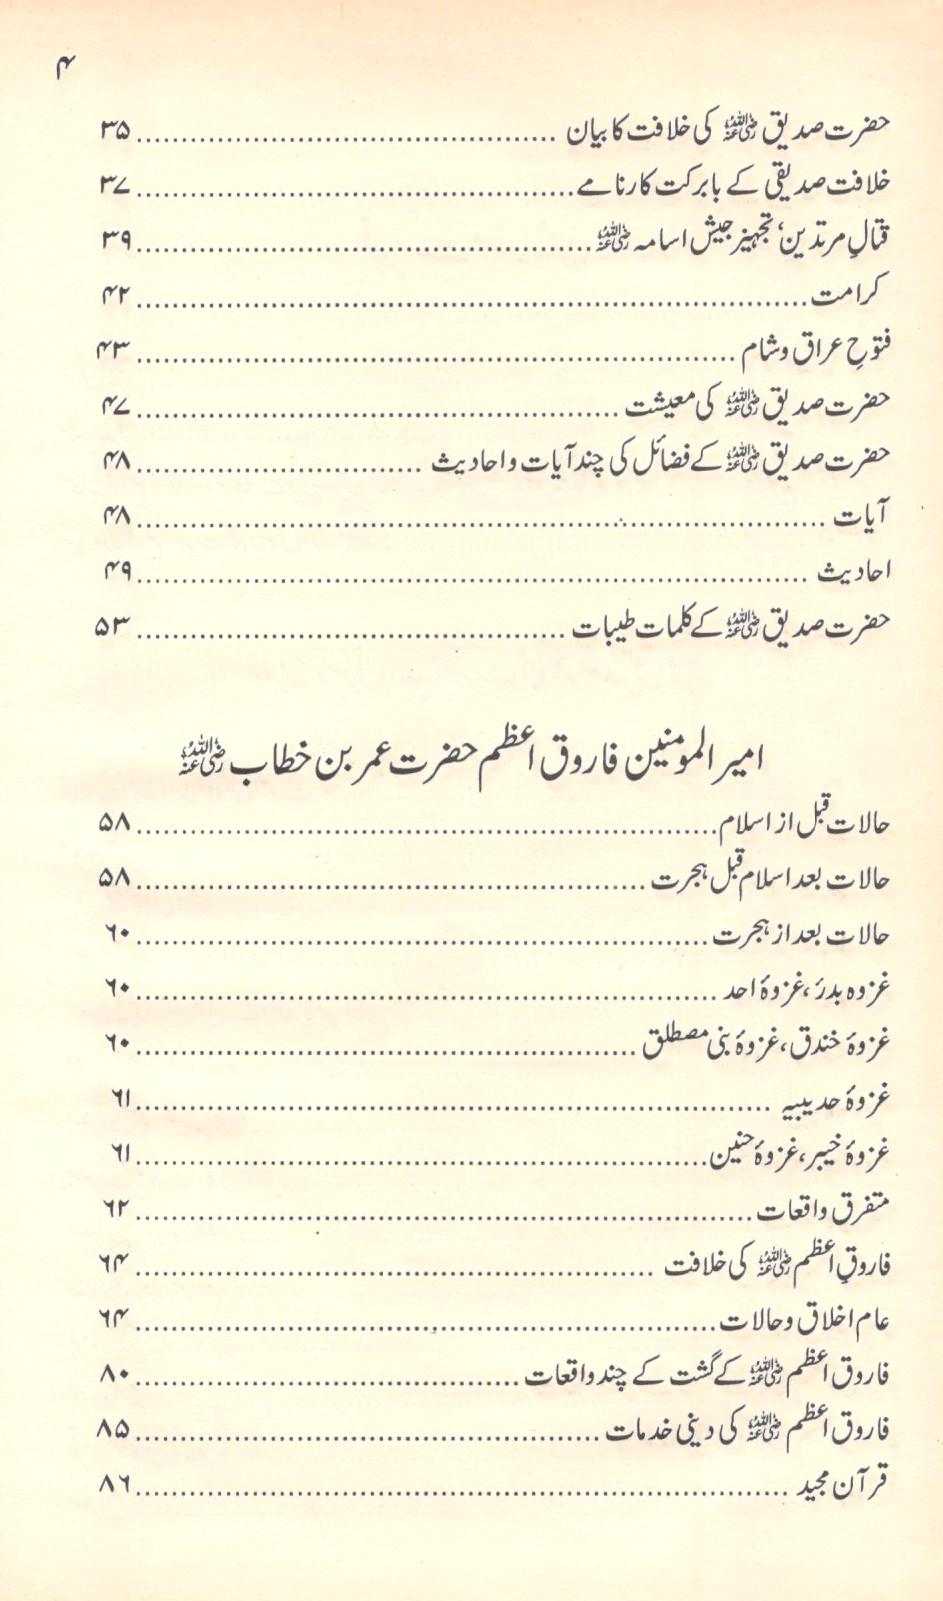 ۴
حضرت صدیق رضی اللہ عنہ کی خلافت کا بیان ........ ۳۵
خلافت صدیقی کے بابرکت کارنامے ........ ۳۷
قتالِ مرتدین، تجہیز جیش اسامہ رضی اللہ عنہ ........ ۳۹
کرامت ........ ۴۲
فتوحِ عراق و شام ........ ۴۳
حضرت صدیق رضی اللہ عنہ کی معیشت ........ ۴۷
حضرت صدیق رضی اللہ عنہ کے فضائل کی چند آیات و احادیث ........ ۴۸
آیات ........ ۴۸
احادیث ........ ۴۹
حضرت صدیق رضی اللہ عنہ کے کلمات طیبات ........ ۵۳
امیر المومنین فاروق اعظم حضرت عمر بن خطاب رضی اللہ عنہ
حالات قبل از اسلام ........ ۵۸
حالات بعد اسلام قبل ہجرت ........ ۵۸
حالات بعد از ہجرت ........ ۶۰
غزوہ بدر، غزوۂ احد ........ ۶۰
غزوۂ خندق، غزوۂ بنی مصطلق ........ ۶۰
غزوۂ حدیبیہ ........ ۶۱
غزوۂ خیبر، غزوۂ حنین ........ ۶۱
متفرق واقعات ........ ۶۲
فاروقِ اعظم رضی اللہ عنہ کی خلافت ........ ۶۴
عام اخلاق و حالات ........ ۶۴
فاروق اعظم رضی اللہ عنہ کے گشت کے چند واقعات ........ ۸۰
فاروق اعظم رضی اللہ عنہ کی دینی خدمات ........ ۸۵
قرآن مجید ........ ۸۶